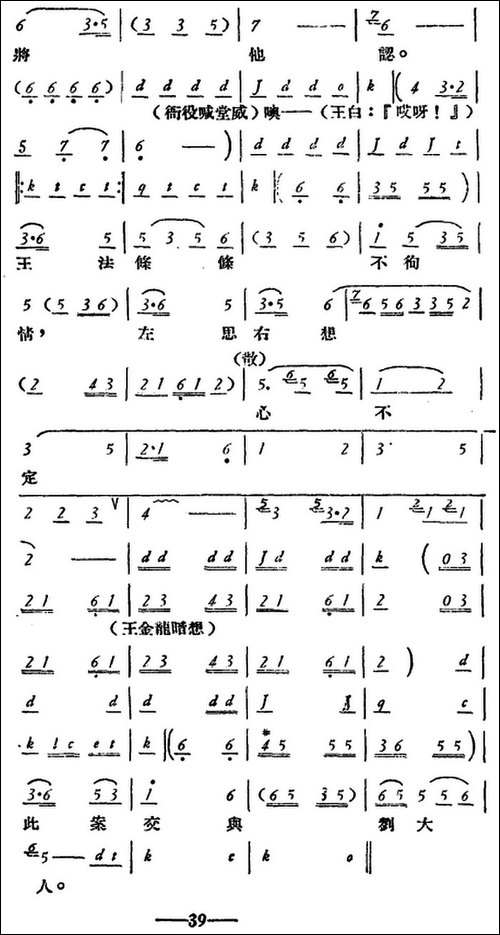 6 3·5 | (3 3 5) | 7 — | 7 6
將 他 認。
(6 6 6 6) | d d d d | J d d o | k ‖(4 3·2
(衙役喊堂威)噢——(王白:『哎呀!』)
5 7 7 | 6 —) | d d d d | J d J t
‖: k t c t :‖ q t c t | k ‖(6 6 | 35 55)
3·6 5 | 5 3 5 6 | (3 5 6) | i 5 35
王 法 條 條 不 徇
5 (5 36) | 3·6 5 | 3·5 6 | 7 6 5 6 3 3 5 2
情, 左 思 右 想
(散)
(2 43 | 21 61 2) | 5. 6 5 6 5 | 1 2
心 不
3 5 | 2·1 6 | 1 2 | 3· 5
定
2 2 3 V | 4 — | 5 3 5 3·2 | 1 2 1 2 1
2 — | dd dd | Jd dd | k (03
21 61 | 23 43 | 21 61 | 2 03
(王金龍暗想)
21 61 | 23 43 | 21 61 | 2 ) d
d d | d dd | J J | q c
k l c e t | k ‖(6 6 | #45 55 | 36 55)
3·6 53 | i 6 | (65 35) | 65 5 5 6
此 案 交 與 劉 大
6 5 — d t | k c | k o ‖
人。
—39—